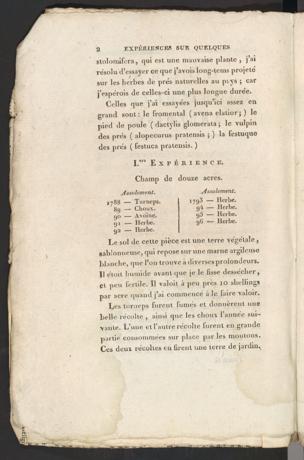 2 EXPÉRIENCES SUR QUELQUES
stolonifera, qui est une mauvaise plante, j'ai
résolu d'essayer ce que j'avois long-tems projeté
sur les herbes de prés naturelles au pays; car
j'espérois de celles-ci une plus longue durée.
Celles que j'ai essayées jusqu'ici assez en
grand sont: le fromental (avena elatior;) le
pied de poule (dactylis glomerata; le vulpin
des prés (alopecurus pratensis;) la festuque
des prés (festuca pratensis.)
I.ère EXPÉRIENCE.
Champ de douze acres.
Assolement. Assolement.
1788 — Turneps. 1793 — Herbe.
89 — Choux. 94 — Herbe.
90 — Avoine. 95 — Herbe.
91 — Herbe. 96 — Herbe.
92 — Herbe.
Le sol de cette pièce est une terre végétale,
sablonneuse, qui repose sur une marne argileuse
blanche, que l'on trouve à diverses profondeurs.
Il étoit humide avant que je le fisse dessécher,
et peu fertile. Il valoit à peu près 10 shellings
par acre quand j'ai commencé à le faire valoir.
Les turneps furent fumés et donnèrent une
belle récolte, ainsi que les choux l'année sui-
vante. L'une et l'autre récolte furent en grande
partie consommées sur place par les moutons.
Ces deux récoltes en firent une terre de jardin,